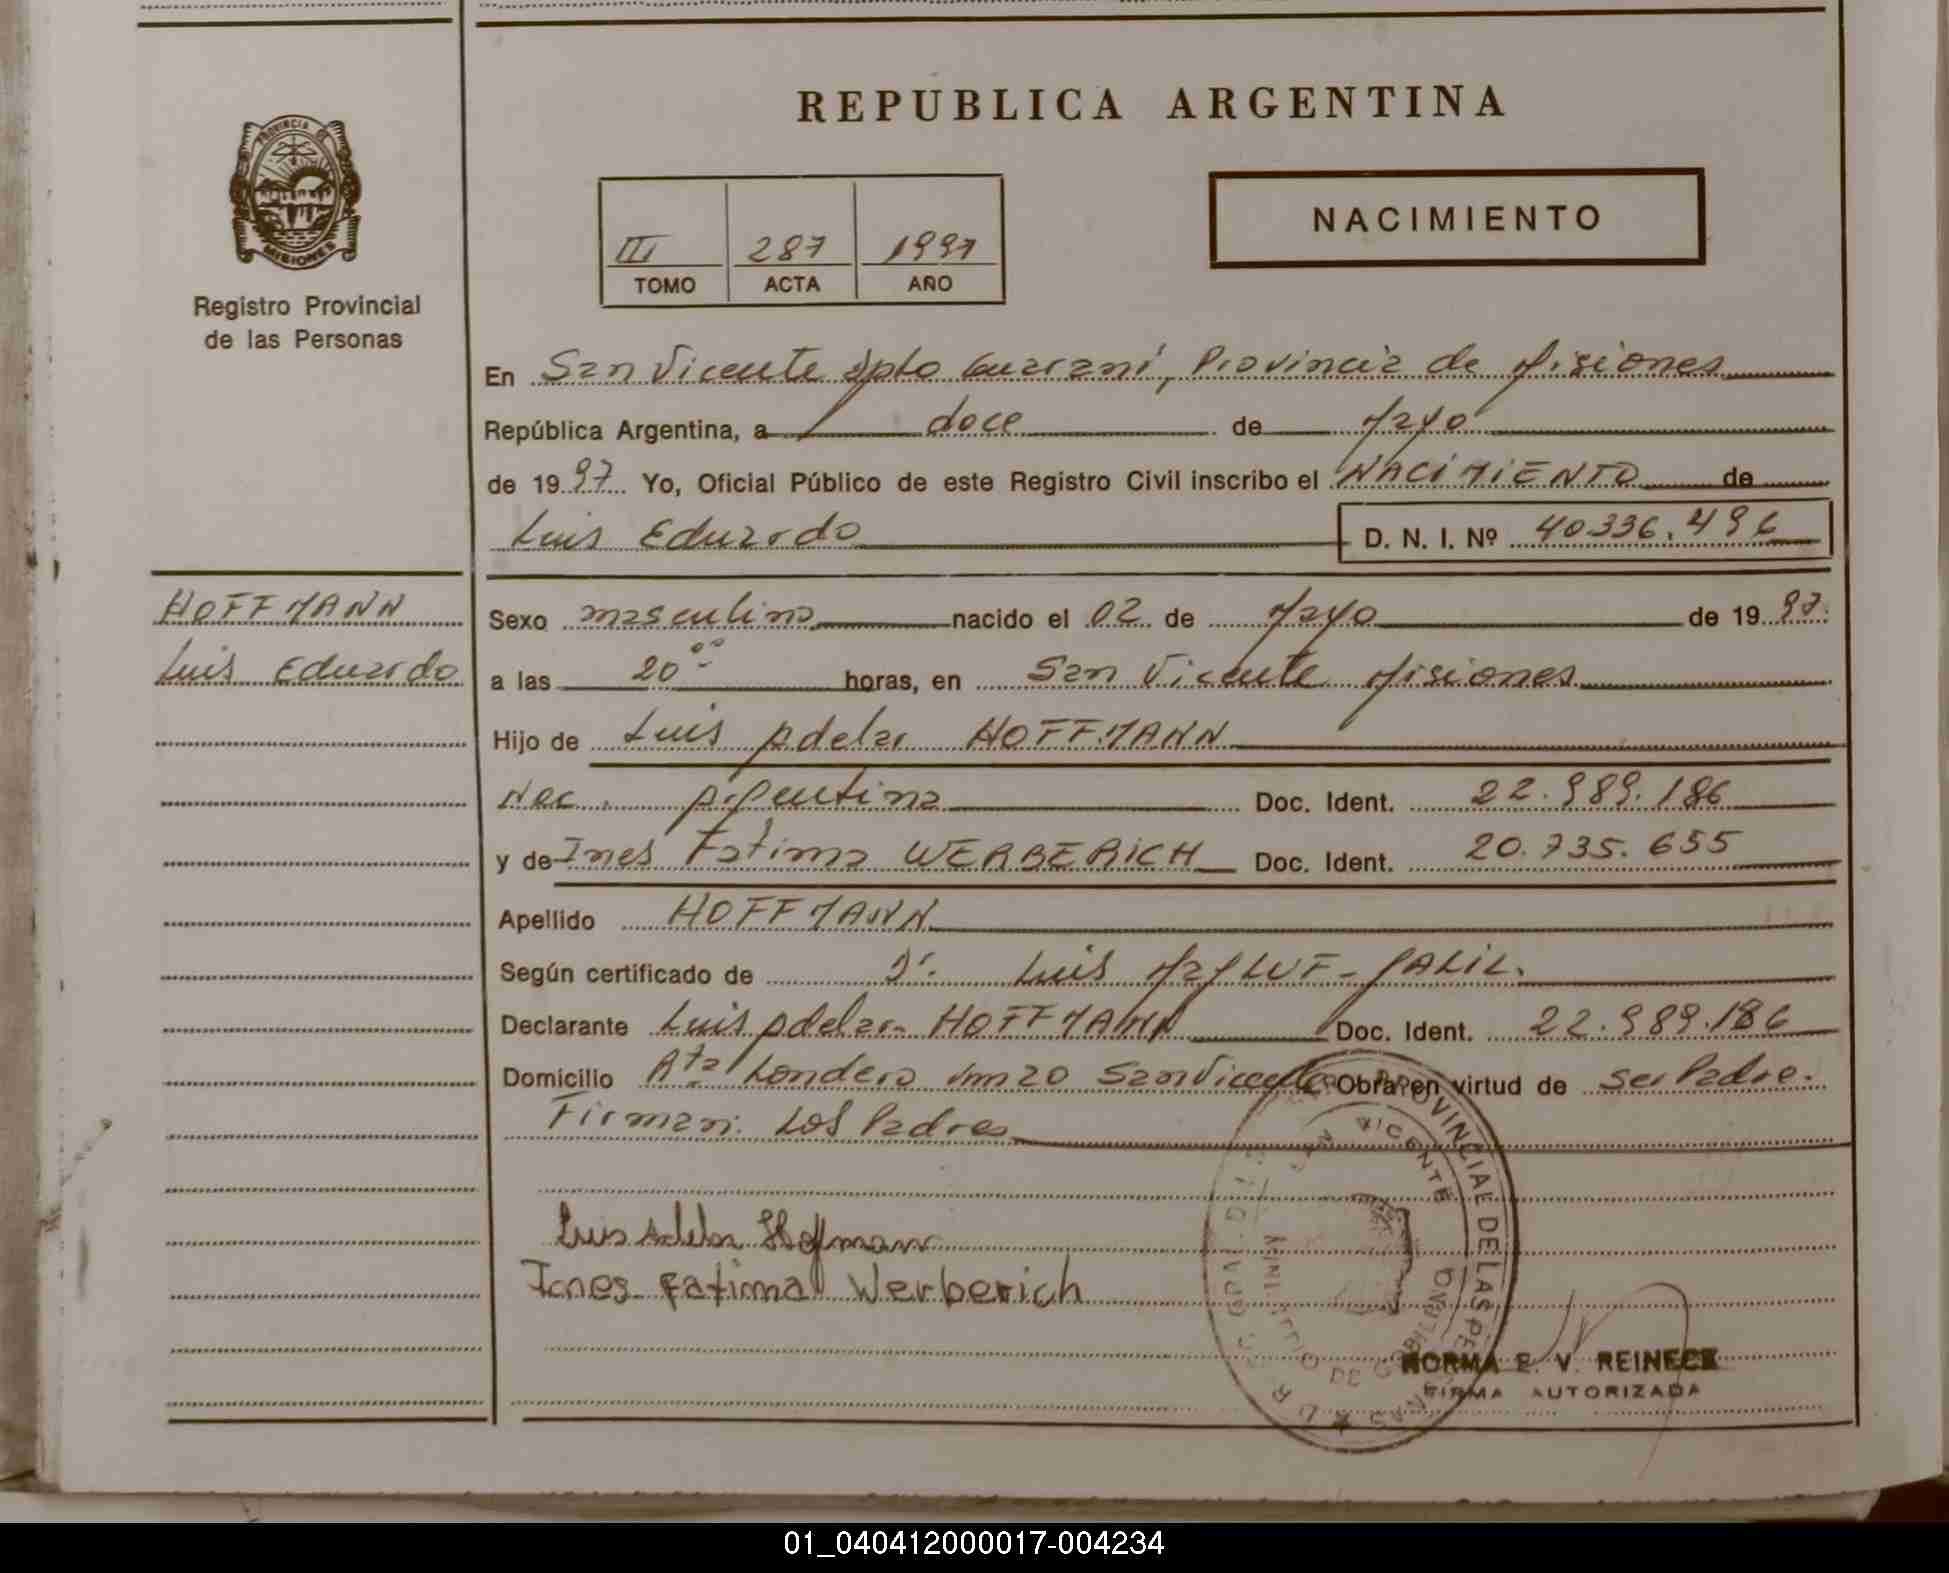 REPUBLICA ARGENTINA
PROVINCIA DE
MISIONES
Registro Provincial
de las Personas
III 287 1997
TOMO ACTA AÑO
NACIMIENTO
En San Vicente Dpto Guaraní, Provincia de Misiones
República Argentina, a doce de Mayo
de 1997 Yo, Oficial Público de este Registro Civil inscribo el NACIMIENTO de
Luis Eduardo D. N. I. Nº 40336.496
HOFFMANN
Luis Eduardo
Sexo masculino nacido el 02 de Mayo de 1997.
a las 20 00 horas, en San Vicente Misiones
Hijo de Luis Adelar HOFFMANN
Nac. Argentina Doc. Ident. 22.989.186
y de Ines Fatima WERBERICH Doc. Ident. 20.735.655
Apellido HOFFMANN
Según certificado de Dr. Luis
Declarante Luis Adelar HOFFMANN Doc. Ident. 22.989.186
Domicilio Londero km 20 San Vicente Obra en virtud de ser Padre.
Firman: Los Padres
Luis Adelar Hofmann
Ines Fatima Werberich
PROVINCIAL DE LAS PERSONAS
SAN VICENTE
MINISTERIO DE GOBIERNO
NORMA E. V. REINECK
FIRMA AUTORIZADA
01_040412000017-004234